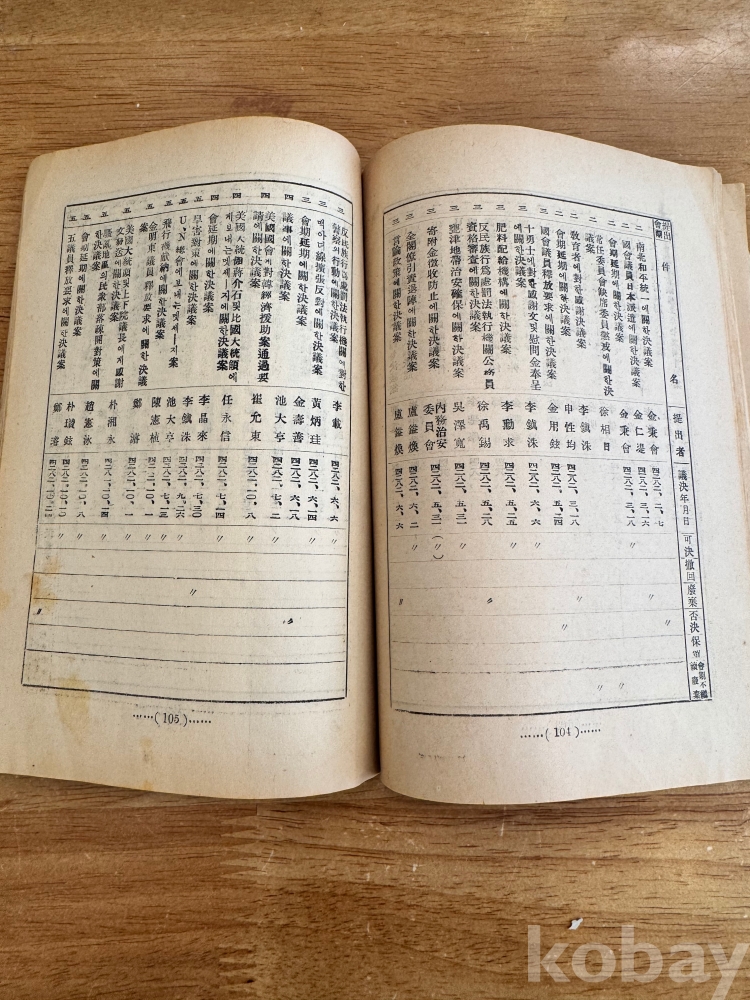 提出會期 件名 提出者 議決年月日 可決 撤回 廢棄 否決 保留 會期不繼續廢案
二 南北和平統一에關한決議案 金秉會 四二八二、二、七
二 國會議員日本派遣에關한決議案 四二八二、三、一六
二 會期延期에關한決議案 金秉會 四二八二、三、八 〃
二 常任委員會缺席委員懲戒에關한決
議案 徐相日 〃
二 敎育者에對한感謝決議案 李鎭洙 〃
二 會期延期에關한決議案 申性均 四二八二、三、一八 〃
二 國會議員釋放要求에關한決議案 金用鉉 〃
三 十勇士에對한感謝文및慰問金奉呈
에關한決議案 李鎭洙 四二八二、六、六 〃
三 肥料配給機構에關한決議案 李勳求 四二八二、五、二五 〃
三 反民族行爲處罰法執行機關公務員
資格審査에關한決議案 徐禹錫 四二八二、五、二八 〃
三 甕津地帶治安確保에關한決議案 吳澤寬 四二八二、五、二一 〃
三 寄附金徵收防止에關한決議案 內務治安
委員會 四二八二、五、三一 (〃)
三 全閣僚引責退陣에關한決議案 盧鎰煥 四二八二、六、二 〃
三 言論政策에關한決議案 盧鎰煥 四二八二、六、六 〃
……(104)……
三 反民族行爲處罰法執行機關에對한
警察의行動에關한決議案 李載 四二八二、六、六 〃
三 매아더線擴張反對에關한決議案 黃炳珪 四二八二、六、一四 〃
三 會期延期에關한決議案 金壽善 四二八二、六、一八 〃
四 議事에關한決議案 池大亨 四二八二、七、二 〃
四 美國國會에對韓經濟援助案通過要
請에關한決議案 崔允東 四二八二、一〇、八 〃
四 美國大統領蔣介石및比國大統領에
게보내는멧세ー지에關한決議案 任永信 四二八二、七、一四 〃
四 會期延期에關한決議案 李晶來 四二八二、七、三〇 〃
五 旱害對策에關한決議案 李鎭洙 四二八二、九、二六 〃
五 U.N.總會에보내는멧세ー지案 池大亨 〃
五 飛行機獻納에關한決議案 陳憲植 〃
五 金明東議員釋放要求에關한決議
案 鄭濬 〃
五 美國大統領및上下院議長에게感謝
文發送에關한決議案 朴湘永 〃
五 騷亂地區의民衆部落疎開對策에關
한決議案 趙憲泳 〃
五 會期延期에關한決議案 朴璣鉉 〃
五 五議員釋放要求에關한決議案 鄭濬 〃
……(105)……
kobay